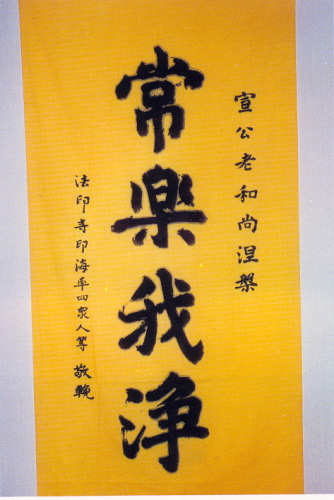 宣公老和尚涅槃
常楽我浄
法印寺印海率四眾人等 敬輓